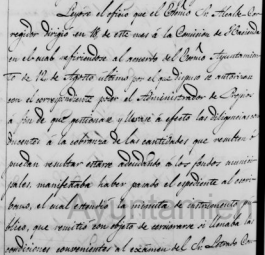 Leyóse el oficio que el Exmo. Sr. Alcalde Cor-
regidor dirigió en 18 de este mes á la Comisión de Hacienda
en el cual refiriéndose al acuerdo del Excmo. Ayuntamien-
to de 12 de Agosto último por el que dispuso se autorizase
con el correspondiente poder al Administrador de Propios
á fin de que gestionase y llevase á efecto las diligencias con-
ducentes á la cobranza de las cantidades que resulten ó
puedan resultar estarse adeudando á los fondos munici-
pales, manifestaba haber pasado el expediente al escri-
bano, el cual estendió la minuta de instrumento pú-
blico, que remitió con objeto de cerciorarse si llenaba las
condiciones convenientes al exámen del Sr. Letrado Con-
Ayuntamiento